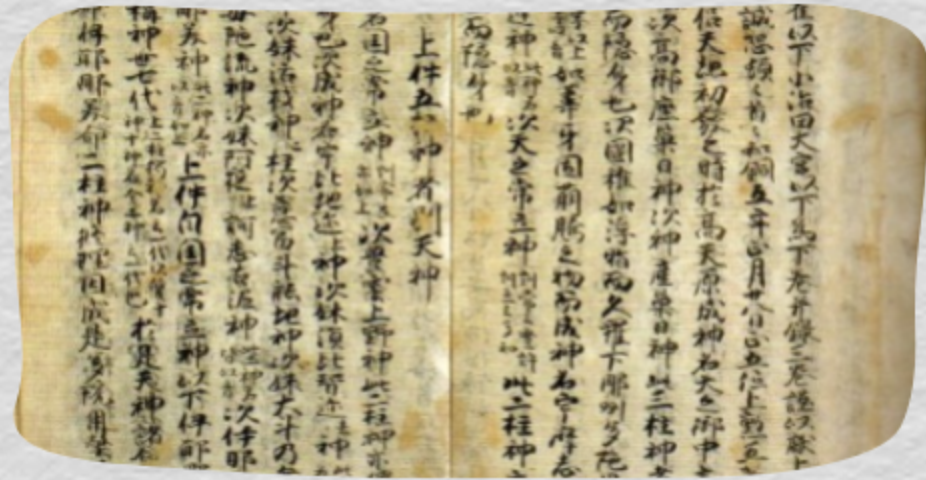 以下小治田大宮以下為下巻并録三巻謹以献上
誠恐頓々首々和銅五年正月廿八日正五位上勲五
天地初發之時於高天原成神名天之御中主
次高御産巣日神次神産巣日神此三柱神者
而隠身也次國稚如浮脂而久羅下那州多陀
如葦牙因萌騰之物而成神名宇摩志
神次天之常立神此二柱神
而隠身也
上件五柱神者別天神
名国之常立神次豊雲上野神此二柱神亦
身也次成神名宇比地迩上神次妹須比智迩上神
次妹活杙神二柱次意富斗能地神次妹大斗乃
母陀流神次妹阿夜上訶志古泥神次伊耶
耶美神上件自国之常立神以下伊耶
稱神世七代於是天神諸命
伊耶那美命二柱神修理固成是多陀用弊